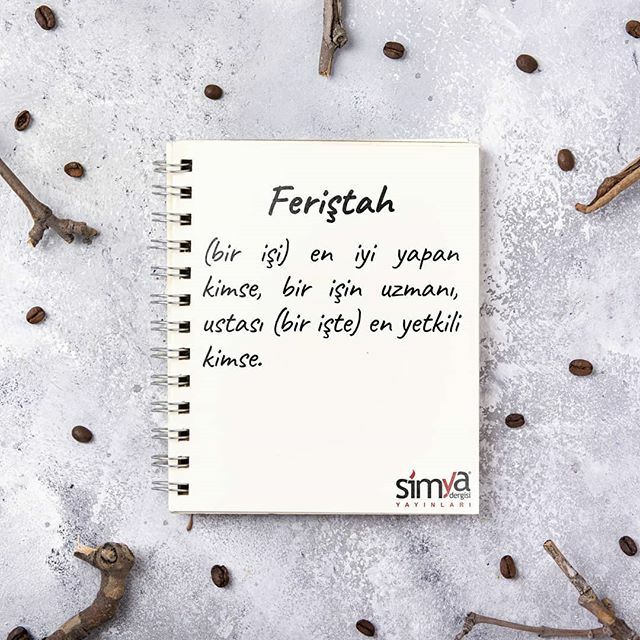 Feriştah
(bir işi) en iyi yapan
kimse, bir işin uzmanı,
ustası (bir işte) en yetkili
kimse.
simya
dergisi
YAYINLARI